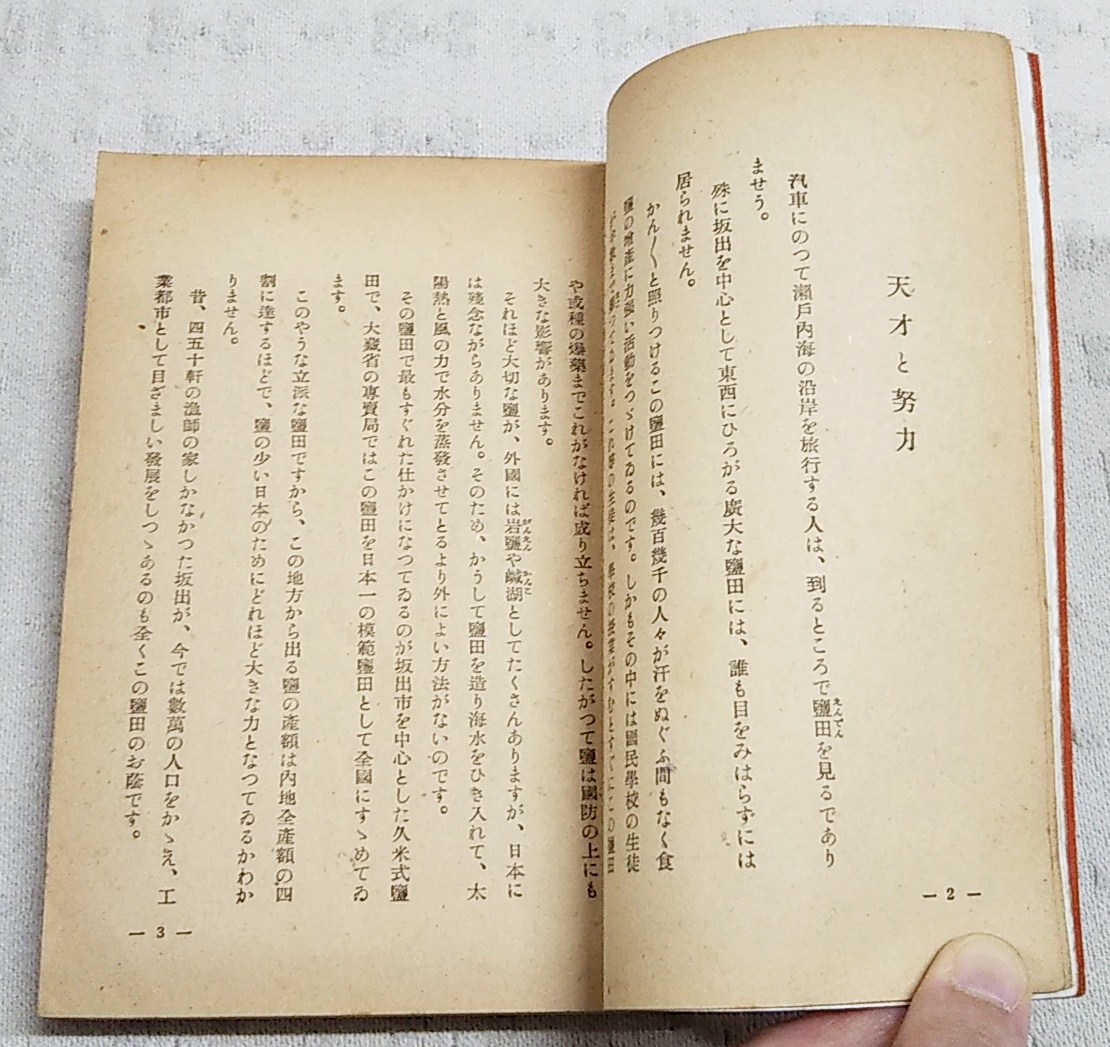 天才と努力
汽車にのつて瀨戸內海の沿岸を旅行する人は、到るところで鹽田を見るであり
ませう。
殊に坂出を中心として東西にひろがる廣大な鹽田には、誰も目をみはらずには
居られません。
かん〳〵と照りつけるこの鹽田には、幾百幾千の人々が汗をぬぐふ間もなく食
鹽の增產に力强い活動をつゞけてゐるのです。しかもその中には國民學校の生徒
— 2 —
や或種の爆藥までこれがなければ成り立ちません。したがつて鹽は國防の上にも
大きな影響があります。
それほど大切な鹽が、外國には岩鹽や鹹湖としてたくさんありますが、日本に
は殘念ながらありません。そのため、かうして鹽田を造り海水をひき入れて、太
陽熱と風の力で水分を蒸發させてとるより外によい方法がないのです。
その鹽田で最もすぐれた仕かけになつてゐるのが坂出市を中心とした久米式鹽
田で、大藏省の專賣局ではこの鹽田を日本一の模範鹽田として全國にすゝめてゐ
ます。
このやうな立派な鹽田ですから、この地方から出る鹽の產額は內地全產額の四
割に達するほどで、鹽の少い日本のためにどれほど大きな力となつてゐるかわか
りません。
昔、四五十軒の漁師の家しかなかつた坂出が、今では數萬の人口をかゝえ、工
業都市として目ざましい發展をしつゝあるのも全くこの鹽田のお蔭です。
— 3 —